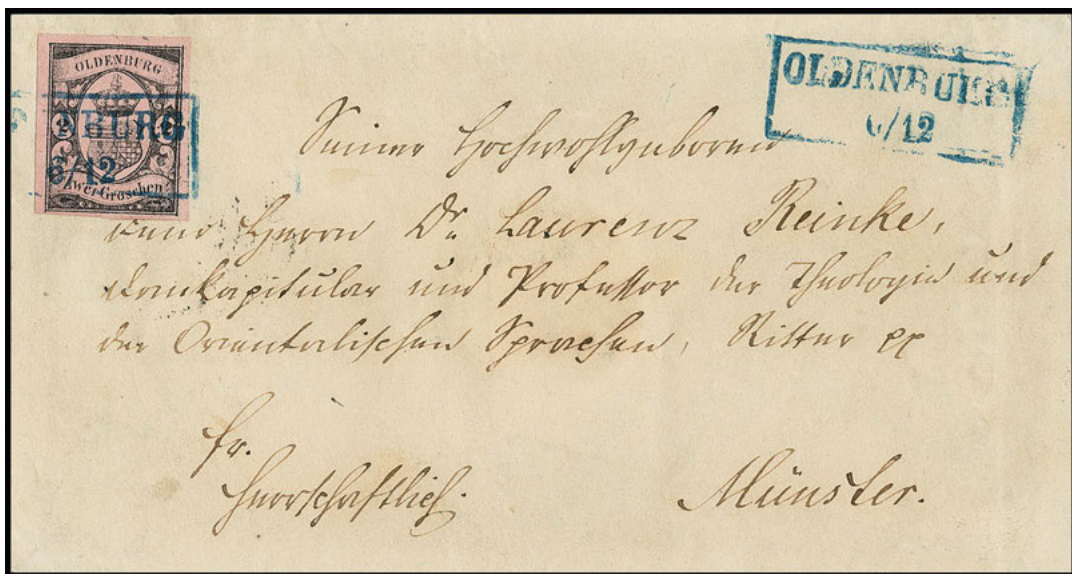 OLDENBURG
2 2
Zwei Groschen
BURG
6/12
OLDENBURG
6/12
Seiner Hochwohlgeboren
dem Herrn Dr. Laurenz Reinke,
Domkapitular und Professor der Theologie und
der Orientalischen Sprachen, Ritter pp
fr.
Herrschaftlich.
Münster.